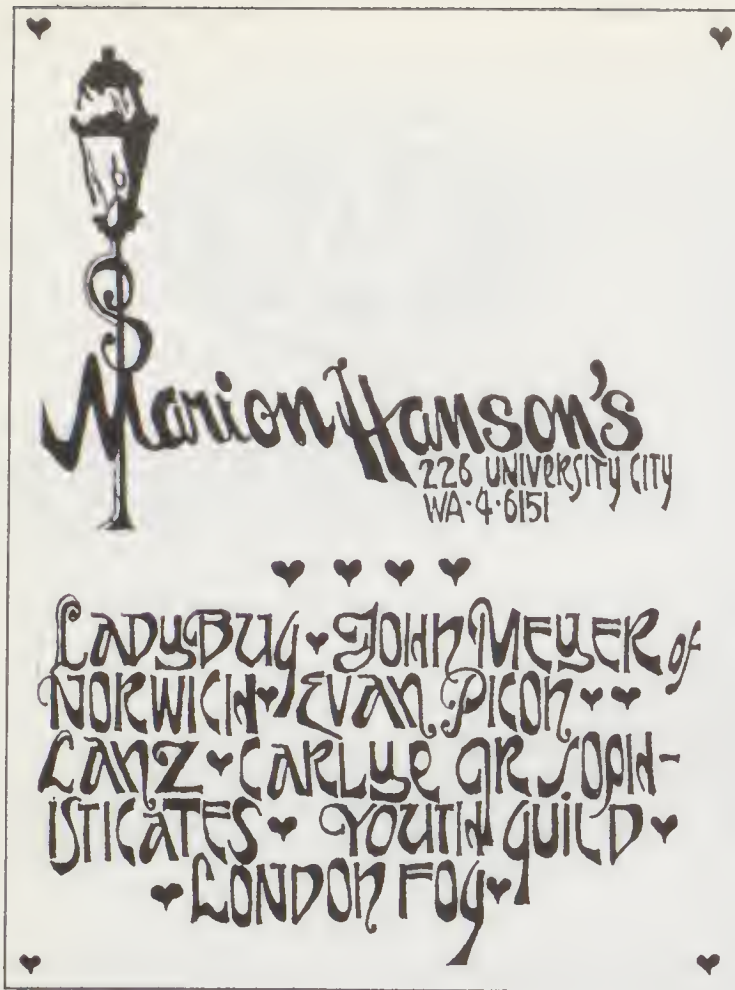 Marion Hanson's
226 UNIVERSITY CITY
WA·4·6151
LADYBUG ♥ JOHN MEYER of
NORWICH ♥ EVAN PICON ♥ ♥
LANZ ♥ CARLYE JR SOPH-
ISTICATES ♥ YOUTH GUILD ♥
♥ LONDON FOG ♥